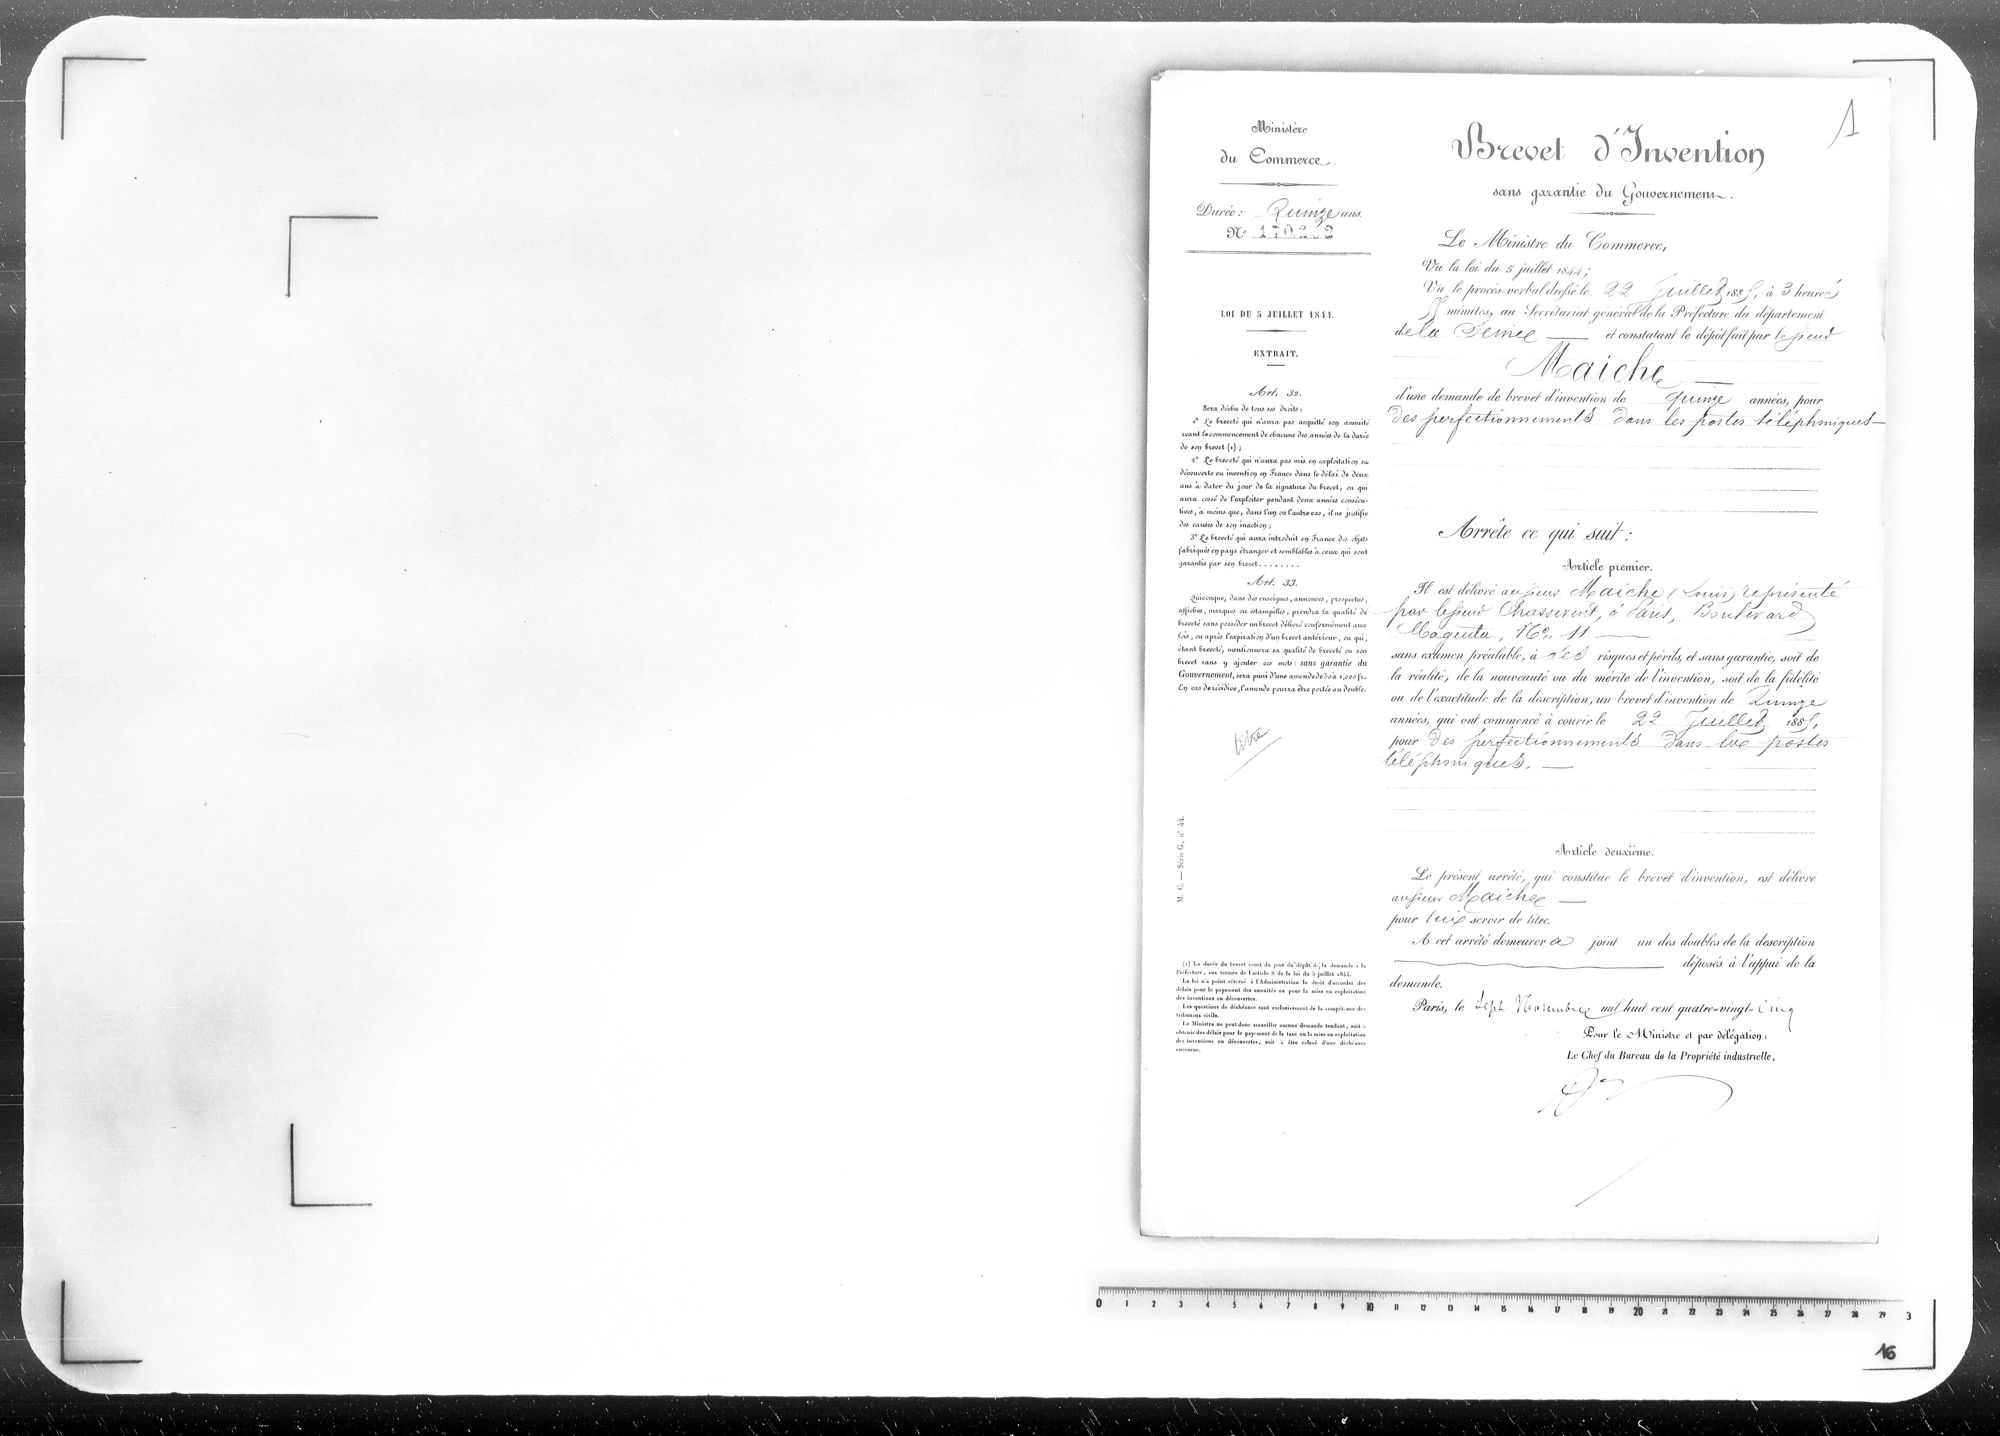 1
Ministère
du Commerce.
Durée : Quinze ans.
N°
LOI DU 5 JUILLET 1844.
EXTRAIT.
Art. 32.
Sera déchu de tous ses droits :
1° Le breveté qui n'aura pas acquitté son annuité
avant le commencement de chacune des années de la durée
de son brevet (1) ;
2° Le breveté qui n'aura pas mis en exploitation sa
découverte ou invention en France dans le délai de deux
ans à dater du jour de la signature du brevet, ou qui
aura cessé de l'exploiter pendant deux années consécu-
tives, à moins que, dans l'un ou l'autre cas, il ne justifie
des causes de son inaction ;
3° Le breveté qui aura introduit en France des objets
fabriqués en pays étranger et semblables à ceux qui sont
garantis par son brevet........
Art. 33.
Quiconque, dans des enseignes, annonces, prospectus,
affiches, marques ou estampilles, prendra la qualité de
breveté sans posséder un brevet délivré conformément aux
lois, ou après l'expiration d'un brevet antérieur, ou qui,
étant breveté, mentionnera sa qualité de breveté ou son
brevet sans y ajouter ces mots : sans garantie du
Gouvernement, sera puni d'une amende de 50 à 1,000 fr.
En cas de récidive, l'amende pourra être portée au double.
titre
M. C. — Série G, n° 44.
(1) La durée du brevet court du jour du dépôt de la demande à la
Préfecture, aux termes de l'article 8 de la loi du 5 juillet 1844.
La loi n'a point réservé à l'Administration le droit d'accorder des
délais pour le payement des annuités ou pour la mise en exploitation
des inventions ou découvertes.
Les questions de déchéance sont exclusivement de la compétence des
tribunaux civils.
Le Ministre ne peut donc accueillir aucune demande tendant, soit à
obtenir des délais pour le payement de la taxe ou la mise en exploitation
des inventions ou découvertes, soit à être relevé d'une déchéance
encourue.
Brevet d'Invention
sans garantie du Gouvernement.
Le Ministre du Commerce,
Vu la loi du 5 juillet 1844 ;
Vu le procès-verbal dressé le 22 Juillet 1885, à 3 heures
minutes, au Secrétariat général de la Préfecture du département
de la Seine — et constatant le dépôt fait par le sieur
Maiche —
d'une demande de brevet d'invention de quinze années, pour
des perfectionnements dans les postes téléphoniques —
Arrête ce qui suit :
Article premier.
Il est délivré au sieur Maiche (Louis) représenté
par le sieur Chassevent, à Paris, Boulevard
Magenta, N° 11 —
sans examen préalable, à ses risques et périls, et sans garantie, soit de
la réalité, de la nouveauté ou du mérite de l'invention, soit de la fidélité
ou de l'exactitude de la description, un brevet d'invention de Quinze
années, qui ont commencé à courir le 22 Juillet 1885,
pour des perfectionnements dans les postes
téléphoniques. —
Article deuxième.
Le présent arrêté, qui constitue le brevet d'invention, est délivré
au sieur Maiche —
pour lui servir de titre.
A cet arrêté demeurera joint un des doubles de la description
déposés à l'appui de la
demande.
Paris, le Sept Novembre mil huit cent quatre-vingt-Cinq
Pour le Ministre et par délégation :
Le Chef du Bureau de la Propriété industrielle,
0 1 2 3 4 5 6 7 8 9 10 11 12 13 14 15 16 17 18 19 20 21 22 23 24 25 26 27 28 29 3
16